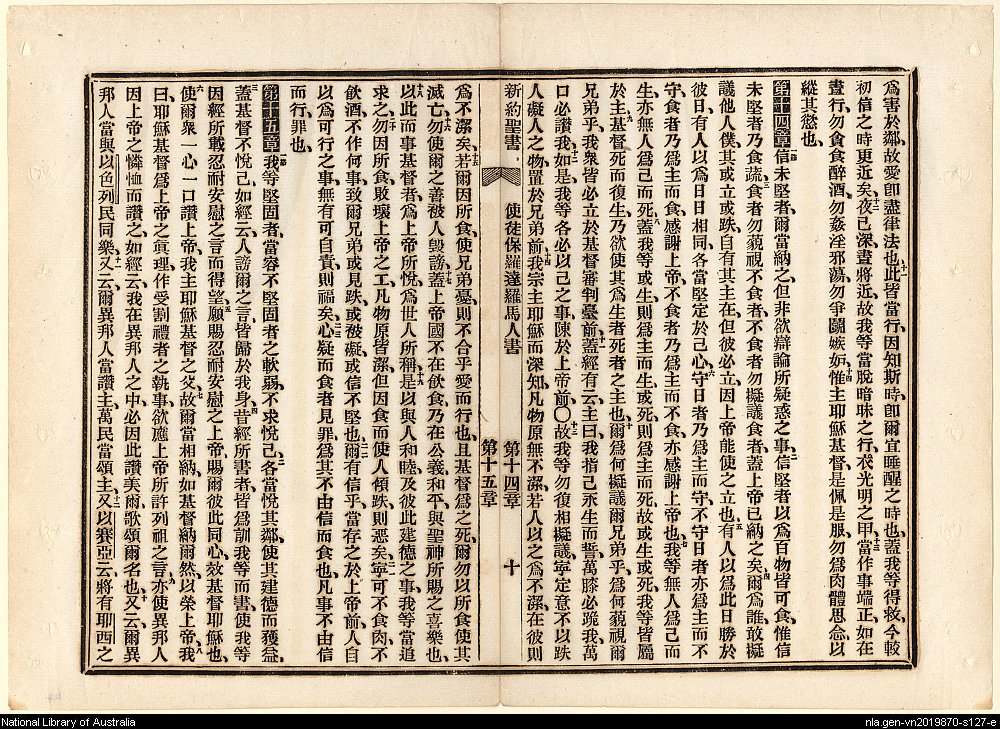 爲害於鄰、故愛卽盡律法也、十一此皆當行、因知斯時、卽爾宜睡醒之時也、蓋我等得救、今較
初信之時更近矣、十二夜已深、晝將近、故我等當脫暗昧之行、衣光明之甲、十三當作事端正、如在
晝行、勿貪食醉酒、勿姦淫邪蕩、勿爭鬭嫉妒、十四惟主耶穌基督是佩是服、勿爲肉體思念、以
縱其慾也、
第十四章 一節信未堅者、爾當納之、但非欲辯論所疑惑之事、二信堅者以爲百物皆可食、惟信
未堅者乃食蔬、三食者勿藐視不食者、不食者勿擬議食者、蓋上帝已納之矣、四爾爲誰、敢擬
議他人僕、其或立或跌、自有其主在、但彼必立、因上帝能使之立也、五有人以爲此日勝於
彼日、有人以爲日日相同、各當堅定於己心、六守日者乃爲主而守、不守日者亦爲主而不
守、食者乃爲主而食、感謝上帝、不食者乃爲主而不食、亦感謝上帝也、七我等無人爲己而
生、亦無人爲己而死、八蓋我等或生則爲主而生、或死則爲主而死、故或生或死、我等皆屬
於主、九基督死而復生、乃欲使其爲生者死者之主也、十爾爲何擬議爾兄弟乎、爲何藐視爾
兄弟乎、我衆皆必立於基督審判臺前、十一蓋經有云、主曰、我指己永生而誓、萬膝必跪我、萬
口必讚我、十二如是、我等各必以己之事陳於上帝前、〇十三故我等勿復相擬議、寧定意不以跌
人礙人之物、置於兄弟前、十四我宗主耶穌而深知、凡物原無不潔、若人以之爲不潔、在彼則
新約聖書 使徒保羅達羅馬人書 第十四章 第十五章 十
爲不潔矣、十五若爾因所食使兄弟憂、則不合乎愛而行也、且基督爲之死、爾勿以所食使其
滅亡、十六勿使爾之善被人毀謗、十七蓋上帝國不在飮食、乃在公義和平、與聖神所賜之喜樂也、
十八以此而事基督者、爲上帝所悅、爲世人所稱、十九是以與人和睦、及彼此建德之事、我等當追
求之、二十勿因所食敗壞上帝之工、凡物原皆潔、但因食而使人傾跌則惡矣、二一寧可不食肉、不
飮酒、不作何事、致爾兄弟或見跌、或被礙、或信不堅也、二二爾有信乎、當存之於上帝前、人自
以爲可行之事、無有可自責、則福矣、二三心疑而食者見罪、爲其不由信而食也、凡事不由信
而行、罪也、
第十五章 一節我等堅固者、當容不堅固者之軟弱、不求悅己、二各當悅其鄰、使其建德而獲益、
三蓋基督不悅己、如經云、人謗爾之言、皆歸於我身、四昔經所書者、皆爲訓我等而書、使我等
因經所載忍耐安慰之言而得望、五願賜忍耐安慰之上帝、賜爾彼此同心、效基督耶穌也、
六使爾衆一心一口讚上帝、我主耶穌基督之父、七故爾當相納、如基督納爾然、以榮上帝、八我
曰、耶穌基督爲上帝之眞理、作受割禮者之執事、欲應上帝所許列祖之言、九亦使異邦人
因上帝之憐恤而讚之、如經云、我在異邦人之中、必因此讚美爾、歌頌爾名也、十又云、爾異
邦人當與以色列民同樂、十一又云、爾異邦人當讚主、萬民當頌主、十二又以賽亞云、將有耶西之
National Library of Australia
nla.gen-vn2019870-s127-e